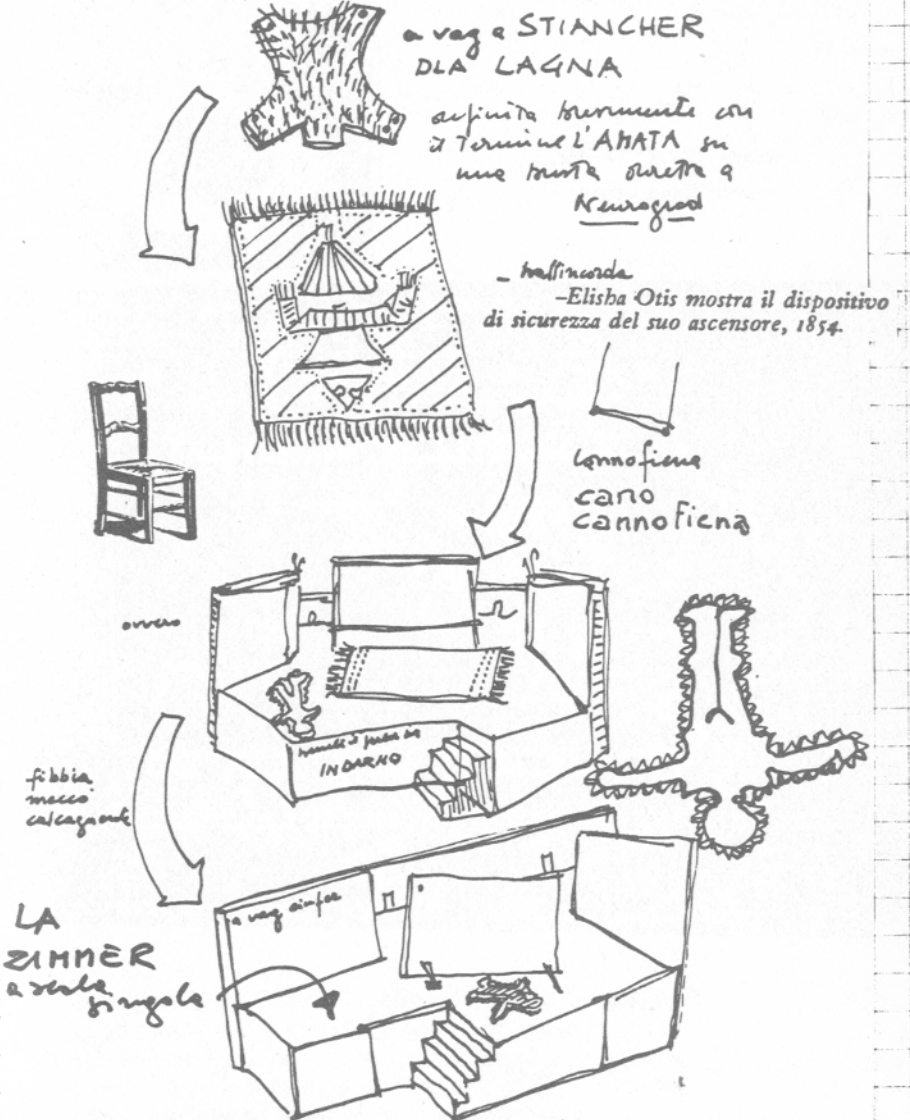 a vag a STIANCHER
DLA LAGNA
definita brevemente con
il Termine L'AMATA su
una busta diretta a
Neurograd
–Elisha Otis mostra il dispositivo
di sicurezza del suo ascensore, 1854.
cannofiena
cano
cannofiena
ovvero
INDARNO
fibbia
mecco
calcagnante
a vag
LA
ZIMMER
a scala
singola